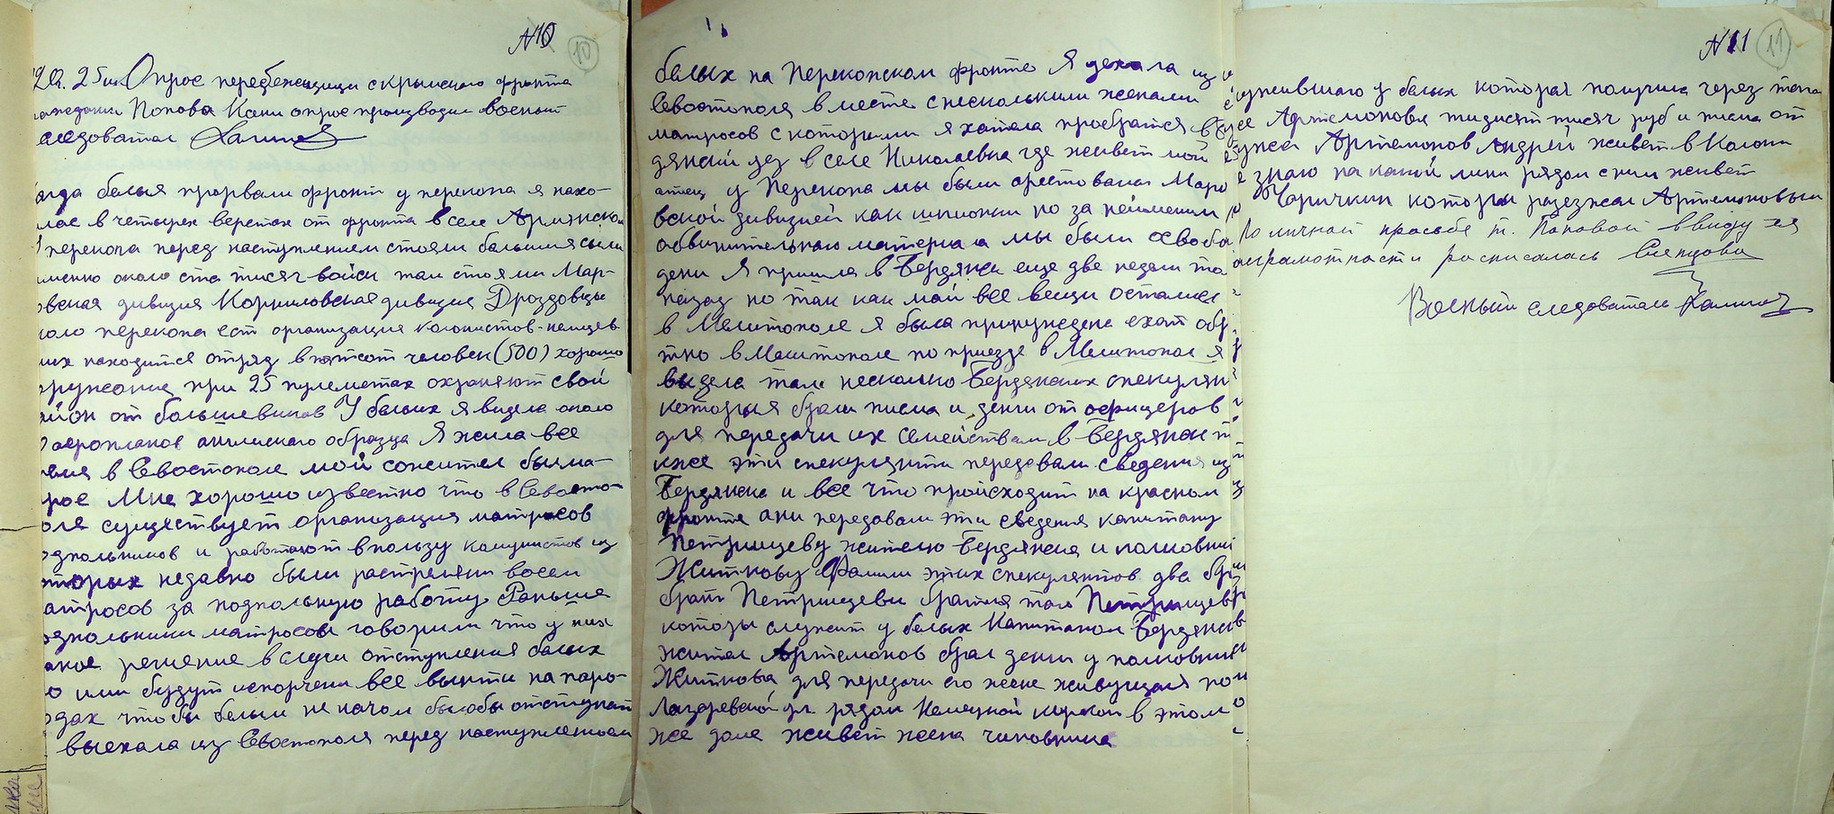 N10
10
Опрос перебежчици с Крымского фронта
Попова Кани опрос производил военый
следовател
белыя прорвали фронт у перекопа я нахо-
лас в четырех верстах от фронта в селе Армянско
перекопа перед наступлением стояли большия силы
около ста тисяч войск там стояли Мар-
овская дивизия Корниловская дивизия Дроздовцы
коло перекопа ест организация колонистов-немцев
них находится отряд в пятсот человек (500) хорошо
оружение при 25 пулеметах охраняют свой
айон от большевиков У белых я видела около
аеропланов англиского образца Я жила все
емя в Севостополе мой сожител был ма-
рос Мне хорошо известно что в Севасто-
оля существует организация матросов
одполников и работают в ползу комунистов из
оторых недавно были растреляни восем
атросов за подполную работу Раньше
одполники матросов говорили что у них
акое решение в случи отступления белых
о ими будут испорчени все винти на паро-
одах чтобы белым не на чом былобы отступат
выехала из Севостополя перед наступлением
белых на Перекопском фронте Я уехала из
Севостополя в месте с несколькими женами
матросов с которими я хотела пробратся в
дянский уез в село Николаевка где живет мой
отец у Перекопа мы были арестованы Марко
вской дивизией как шпионки но за неимением
обвинительнаго материала мы были освобо
дени Я пришла в Бердянск еще две недели то
назад но так как мои все вещи осталис
в Мелитополе я была принуждена ехат обр
тно в Мелитополе по приезде в Мелитопол я
видела там несколко Бердянских спекулян
которыя брали писма и денги от офицеров
для передачи их семействам в Бердянск т
кже эти спекулянти передовали сведения из
Бердянска и все что происходит на красном
фронте они передовали эти сведения капитану
Петрищеву жителю Бердянска и полковни
Житкову Фамили этих спекулянтов два
брат Петрищеви братя того Петрищев
которы служит у белых Капитаном Бердянск
жител Артемонов брал денги у полковник
Житкова для передачи его жене живущая по
Лазаревской ул. рядом Немецкой киркой в этом
же доме живет жена чиновника
N11
11
ужившаго у белых которая получила через того
Артемонова тисяч руб и писма от
ужа Артемонов Андрей живет в Колони
е знаю на какой лини рядом с ним живет
Чаричкин которы разезжал Артемоновым
По личной просьбе т. Поповой ввиду ея
аграмотности росписалась
Военый следователь